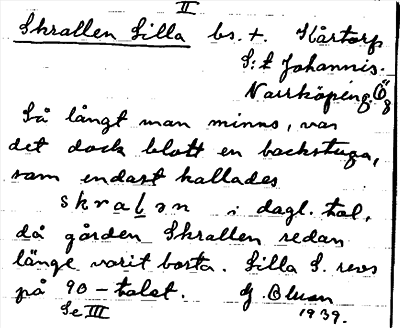 II
Skrallen Lilla bs. t. Kårtorp
S:t Johannis.
Norrköping. Ög
Så långt man minns, var
det dock blott en backstuga,
som endast kallades
skralən i dagl. tal,
då gården Skrallen redan
länge varit borta. Lilla S. revs
på 90-talet. G. Olson
Se III 1939.